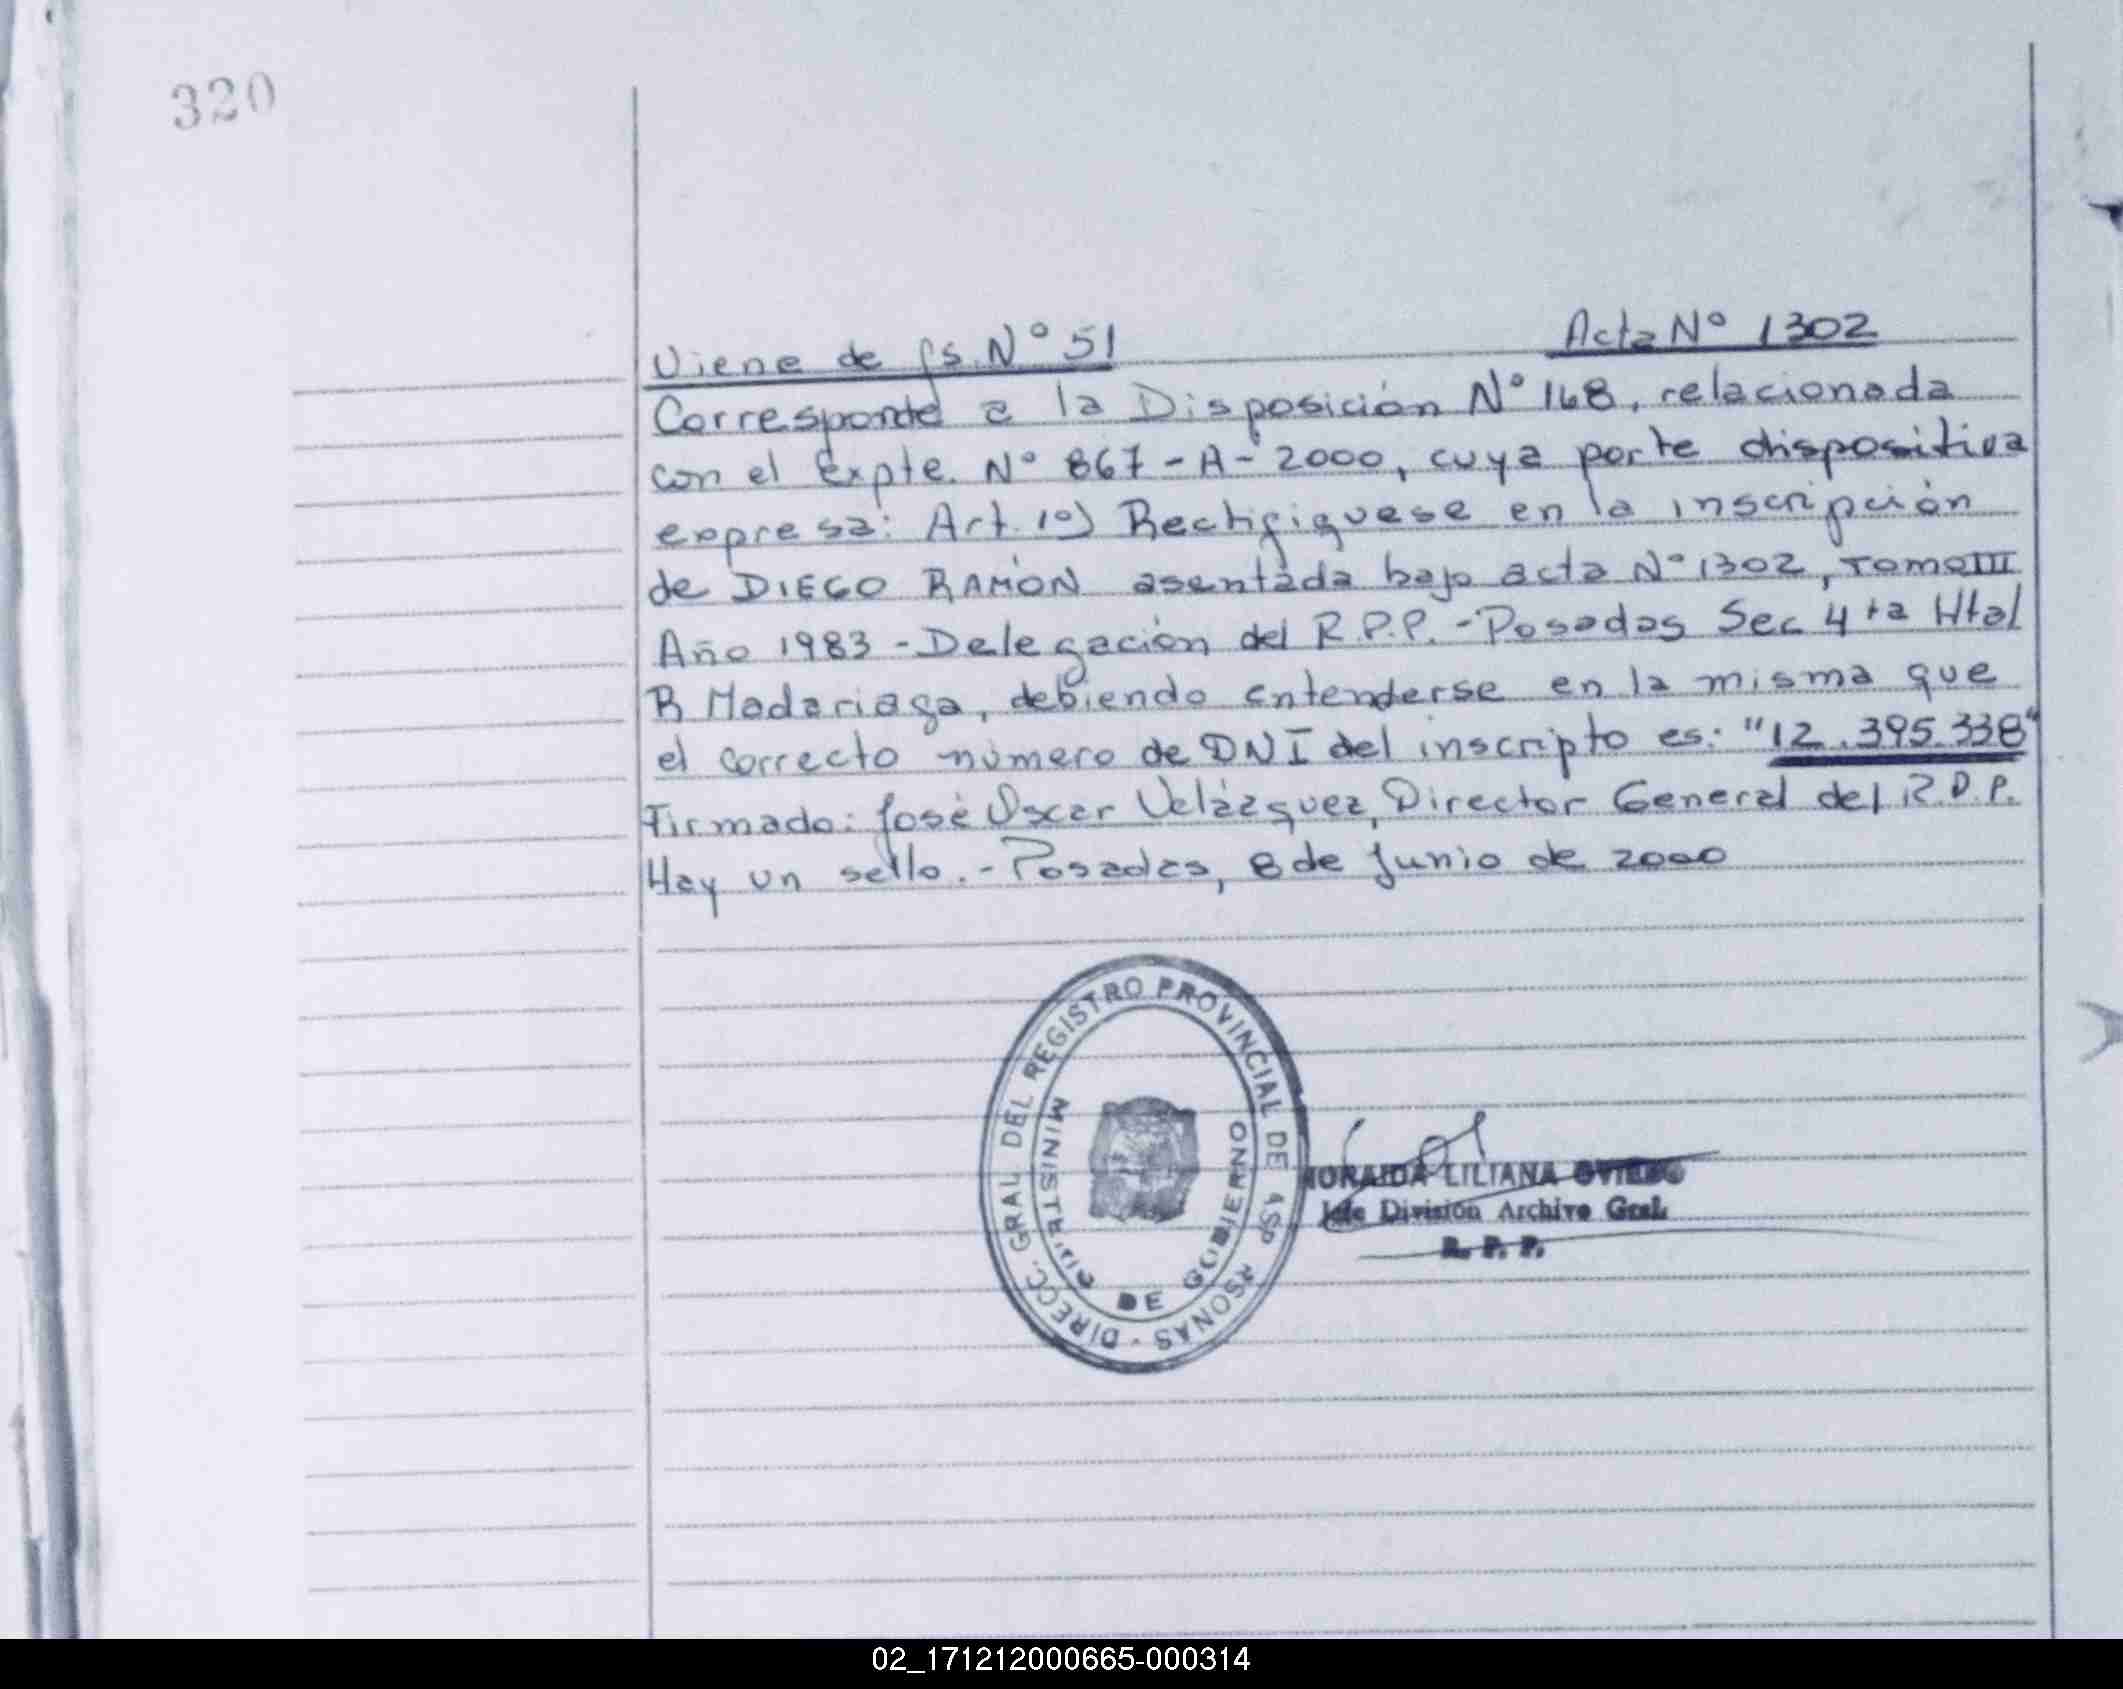 320
Viene de fs. Nº 51
Acta Nº 1302
Corresponde a la Disposición Nº 168, relacionada
con el Expte. Nº 867-A-2000, cuya parte dispositiva
expresa: Art. 1º) Rectifiquese en la inscripción
de DIEGO RAMÓN asentada bajo acta Nº 1302, TOMO III
Año 1983 - Delegación del R.P.P. - Posadas Sec 4ta Htal
R Madariaga, debiendo entenderse en la misma que
el correcto número de DNI del inscripto es: "12.395.338"
Firmado: José Oscar Velázquez, Director General del R.P.P.
Hay un sello. - Posadas, 8 de Junio de 2000
DIRECC. GRAL DEL REGISTRO PROVINCIAL DE PERSONAS
MINISTERIO DE GOBIERNO
LILIANA OVIEDO
Jefe División Archivo Gral.
R. P. P.
02_171212000665-000314